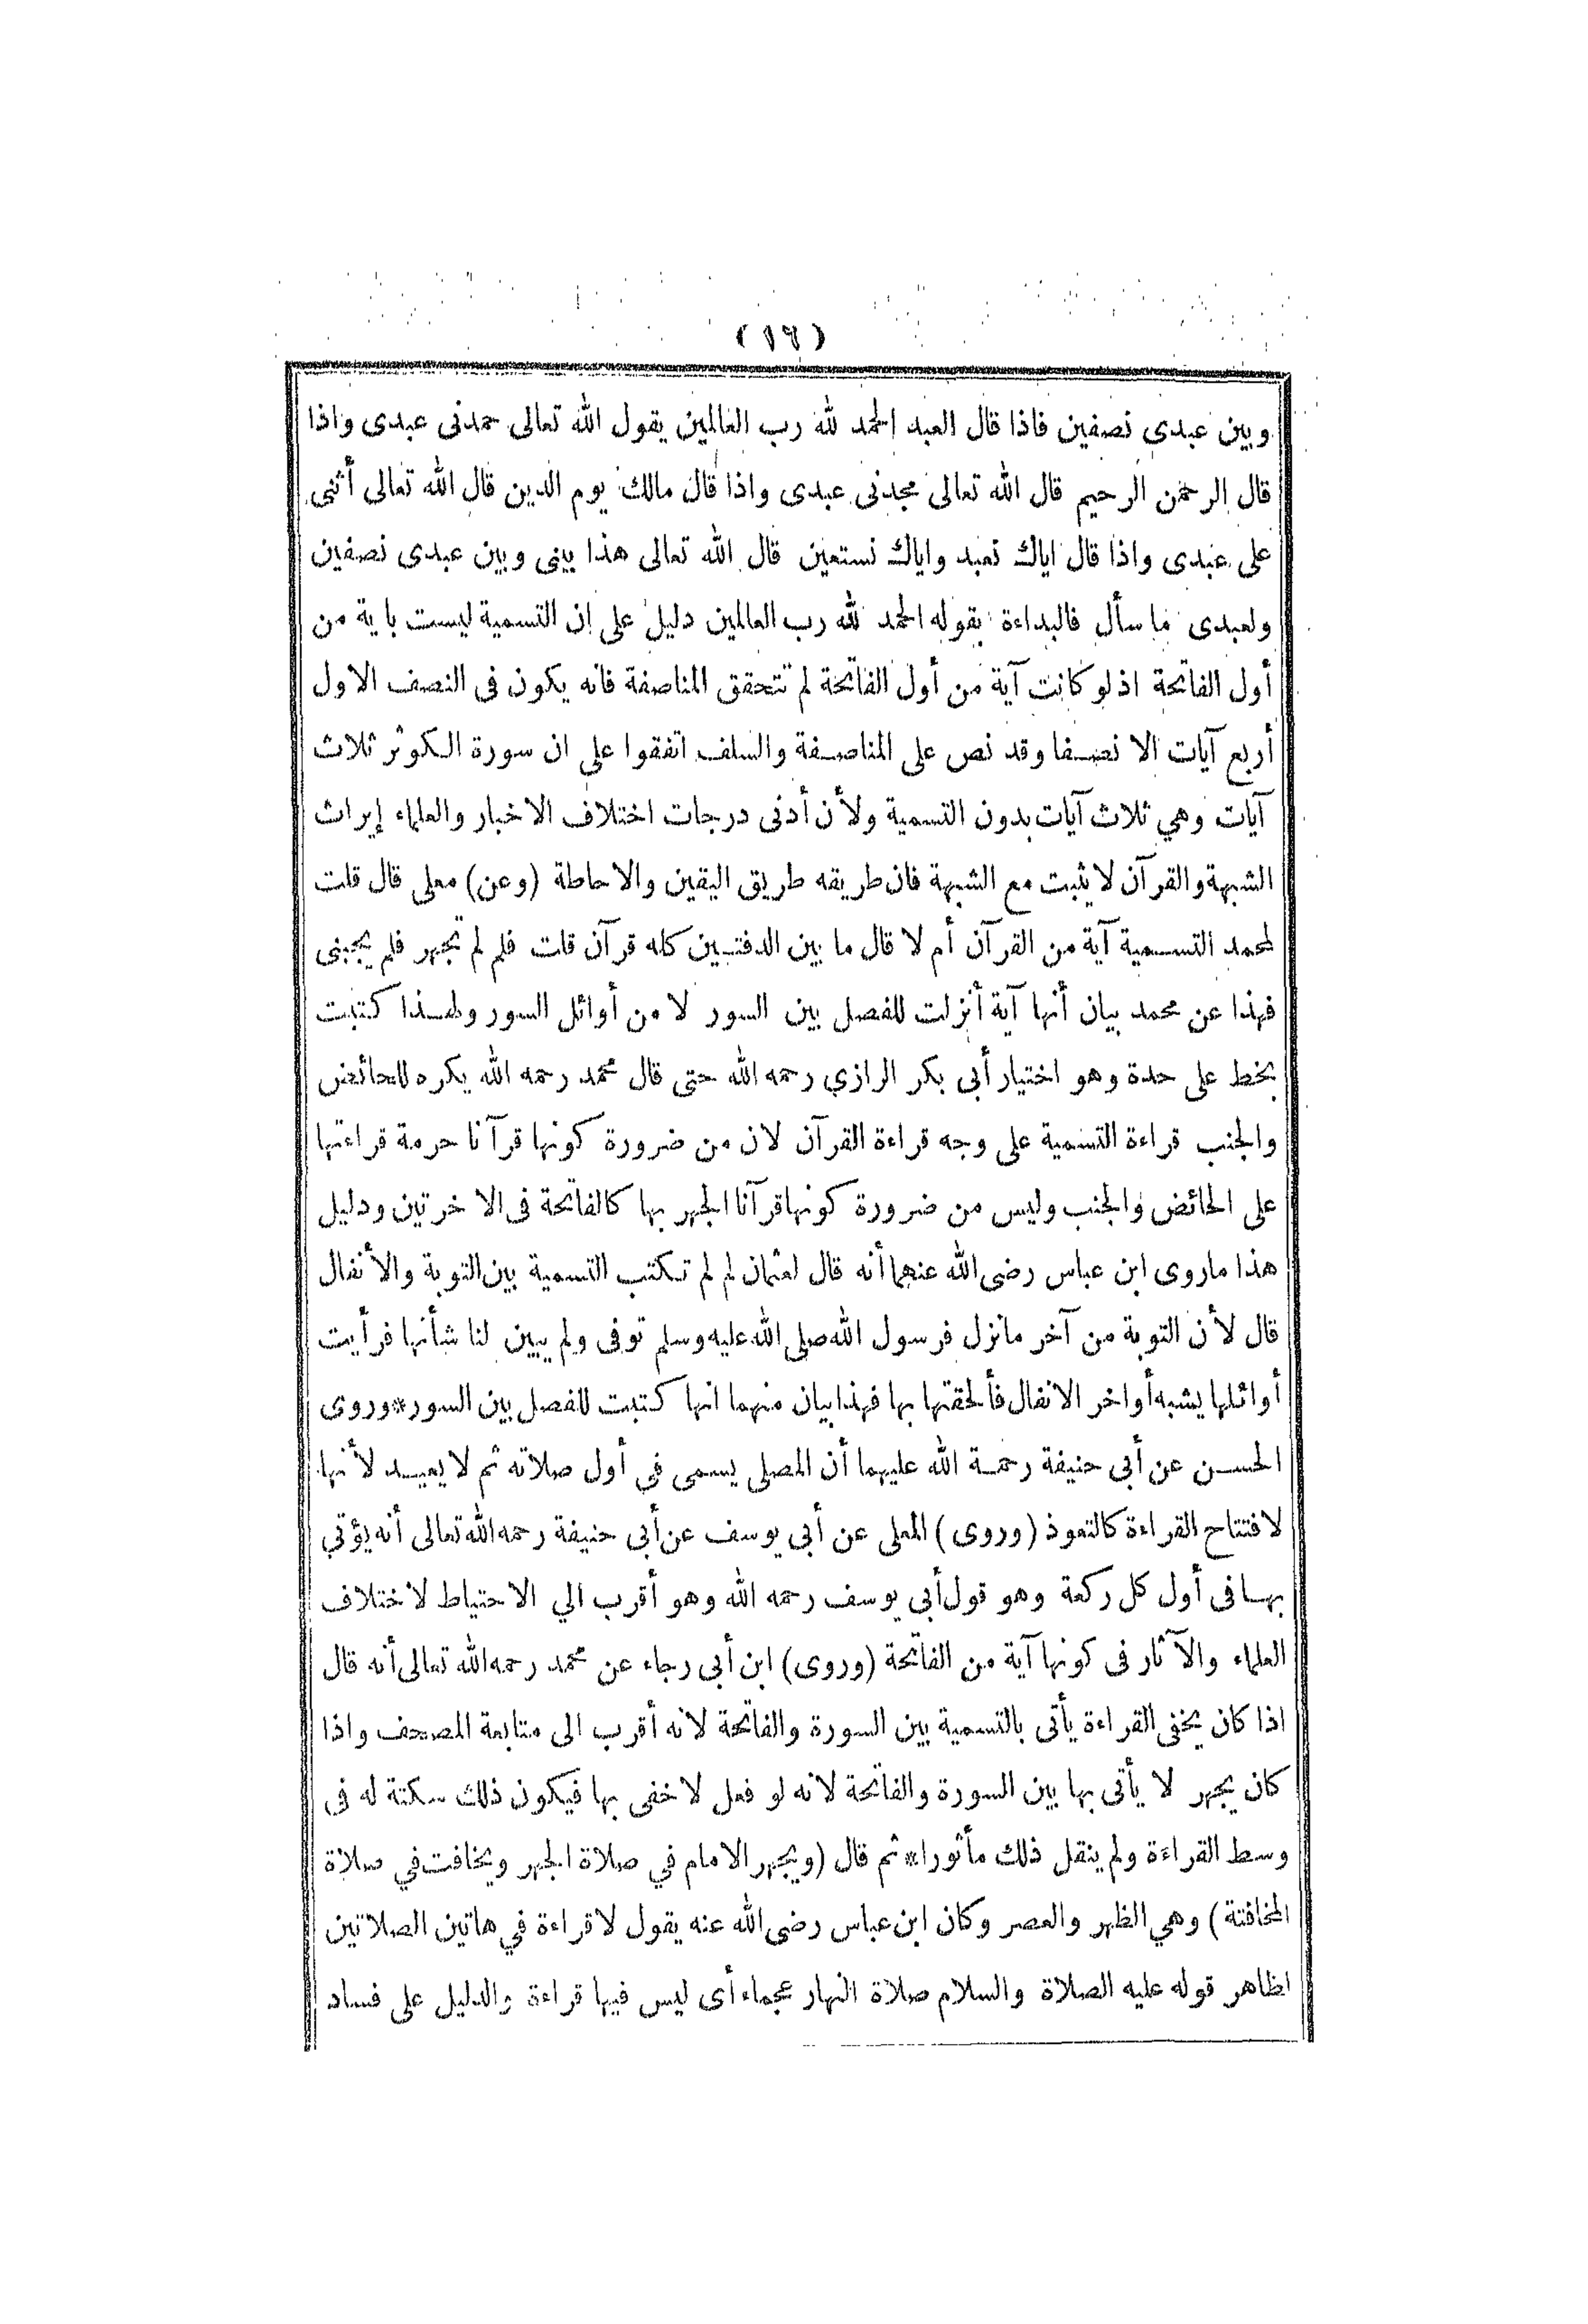 (١٦)
وبين عبدى نصفين فاذا قال العبد الحمد لله رب العالمين يقول الله تعالى حمدنى عبدى واذا
قال الرحمن الرحيم قال الله تعالى مجدنى عبدى واذا قال مالك يوم الدين قال الله تعالى أثنى
على عبدى واذا قال اياك نعبد واياك نستعين قال الله تعالى هذا بينى وبين عبدى نصفين
ولعبدى ما سأل فالبداءة بقوله الحمد لله رب العالمين دليل على ان التسمية ليست باية من
أول الفاتحة اذ لو كانت آية من أول الفاتحة لم تتحقق المناصفة فانه يكون فى النصف الاول
أربع آيات الا نصفا وقد نص على المناصفة والسلف اتفقوا على ان سورة الكوثر ثلاث
آيات وهي ثلاث آيات بدون التسمية ولأن أدنى درجات اختلاف الاخبار والعلماء إيراث
الشبهة والقرآن لا يثبت مع الشبهة فان طريقه طريق اليقين والاحاطة (وعن) معلى قال قلت
لمحمد التسمية آية من القرآن أم لا قال ما بين الدفتين كله قرآن قلت فلم لم تجهر فلم يجبنى
فهذا عن محمد بيان أنها آية أنزلت للفصل بين السور لا من أوائل السور ولهذا كتبت
بخط على حدة وهو اختيار أبى بكر الرازي رحمه الله حتى قال محمد رحمه الله يكره للحائض
والجنب قراءة التسمية على وجه قراءة القرآن لان من ضرورة كونها قرآنا حرمة قراءتها
على الحائض والجنب وليس من ضرورة كونها قرآنا الجهر بها كالفاتحة فى الاخرتين ودليل
هذا ماروى ابن عباس رضى الله عنهما أنه قال لعثمان لم لم تكتب التسمية بين التوبة والأنفال
قال لأن التوبة من آخر مانزل فرسول الله صلى الله عليه وسلم توفى ولم يبين لنا شأنها فرأيت
أوائلها يشبه أواخر الانفال فألحقتها بها فهذا بيان منهما انها كتبت للفصل بين السور*وروى
الحسن عن أبى حنيفة رحمة الله عليهما أن المصلى يسمى في أول صلاته ثم لا يعيد لأنها
لافتتاح القراءة كالتعوذ (وروى) المعلى عن أبي يوسف عن أبى حنيفة رحمه الله تعالى أنه يؤتي
بها فى أول كل ركعة وهو قول أبى يوسف رحمه الله وهو أقرب الي الاحتياط لاختلاف
العلماء والآثار فى كونها آية من الفاتحة (وروى) ابن أبى رجاء عن محمد رحمه الله تعالى أنه قال
اذا كان يخفى القراءة يأتى بالتسمية بين السورة والفاتحة لانه أقرب الى متابعة المصحف واذا
كان يجهر لا يأتى بها بين السورة والفاتحة لانه لو فعل لاخفى بها فيكون ذلك سكتة له فى
وسط القراءة ولم ينقل ذلك مأثورا*ثم قال (ويجهر الامام في صلاة الجهر ويخافت في صلاة
المخافتة) وهي الظهر والعصر وكان ابن عباس رضى الله عنه يقول لا قراءة في هاتين الصلاتين
لظاهر قوله عليه الصلاة والسلام صلاة النهار عجماء أى ليس فيها قراءة والدليل على فساد